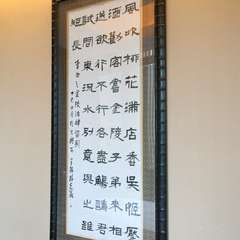 風吹柳花滿店香吳姬壓
酒勸客嘗金陵子弟來相
送欲行不行各盡觴請君
試問東流水別意與之誰
短長